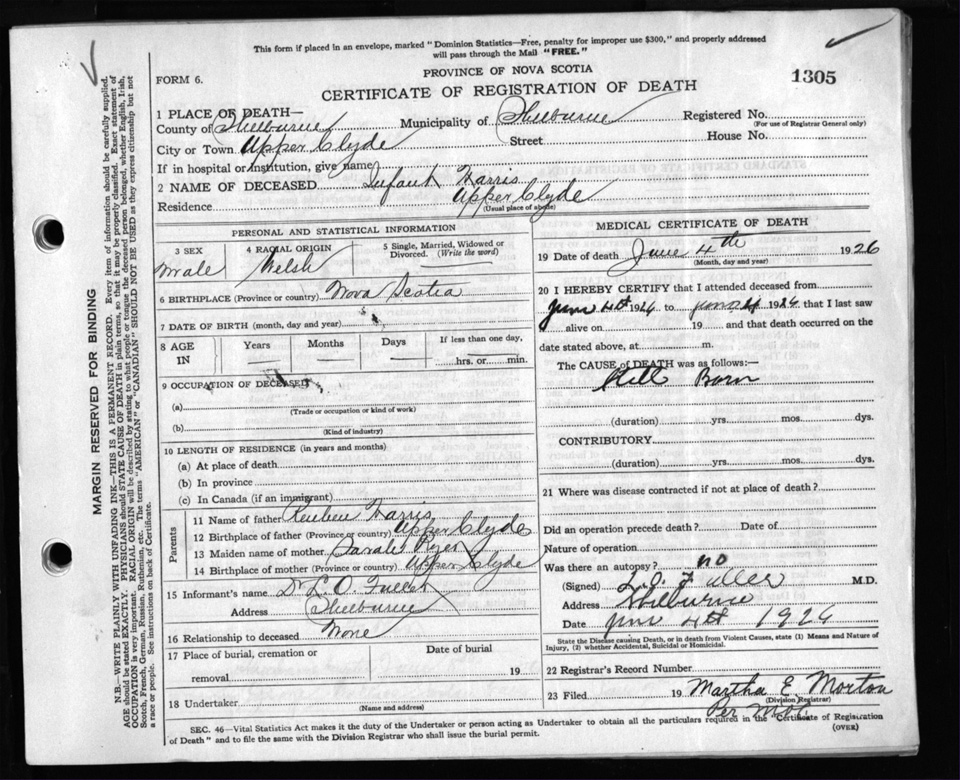 This form if placed in an envelope, marked "Dominion Statistics—Free, penalty for improper use $300," and properly addressed
will pass through the Mail "FREE."
FORM 6.
PROVINCE OF NOVA SCOTIA
CERTIFICATE OF REGISTRATION OF DEATH
1305
MARGIN RESERVED FOR BINDING
N.B.—WRITE PLAINLY WITH UNFADING INK—THIS IS A PERMANENT RECORD. Every item of information should be carefully supplied.
AGE should be stated EXACTLY. PHYSICIANS should STATE CAUSE OF DEATH in plain terms, so that it may be properly classified. Exact statement of
OCCUPATION is very important. RACIAL ORIGIN will be described by stating to what people or tongue the deceased person belonged, whether English, Irish,
Scotch, French, German, Russian, Ruthenian, etc. The terms "AMERICAN" or "CANADIAN" SHOULD NOT BE USED as they express citizenship but not
a race or people. See instructions on back of Certificate.
1 PLACE OF DEATH—
County of Shelburne Municipality of Shelburne Registered No.
(For use of Registrar General only)
City or Town Upper Clyde Street House No.
If in hospital or institution, give name
2 NAME OF DECEASED Infant Harris
Residence Upper Clyde
(Usual place of abode)
PERSONAL AND STATISTICAL INFORMATION
3 SEX
Male
4 RACIAL ORIGIN
Welsh
5 Single, Married, Widowed or
Divorced. (Write the word)
6 BIRTHPLACE (Province or country) Nova Scotia
7 DATE OF BIRTH (month, day and year)
8 AGE
IN
Years Months Days If less than one day,
hrs. or min.
9 OCCUPATION OF DECEASED
(a)
(Trade or occupation or kind of work)
(b)
(Kind of industry)
10 LENGTH OF RESIDENCE (in years and months)
(a) At place of death
(b) In province
(c) In Canada (if an immigrant)
Parents
11 Name of father Reuben Harris
12 Birthplace of father (Province or country) Upper Clyde
13 Maiden name of mother Sarah
14 Birthplace of mother (Province or country) Upper Clyde
15 Informant's name Dr L. O. Fuller
Address Shelburne
16 Relationship to deceased None
17 Place of burial, cremation or Date of burial
removal 19
18 Undertaker
(Name and address)
MEDICAL CERTIFICATE OF DEATH
19 Date of death June 4th 1926
(Month, day and year)
20 I HEREBY CERTIFY that I attended deceased from
June 4th 1926 to June 4 1926 that I last saw
alive on 19 and that death occurred on the
date stated above, at m.
The CAUSE OF DEATH was as follows:—
Still Born
(duration) yrs. mos. dys.
CONTRIBUTORY
(duration) yrs. mos. dys.
21 Where was disease contracted if not at place of death?
Did an operation precede death? Date of
Nature of operation
Was there an autopsy? no
(Signed) L. O. Fuller M.D.
Address Shelburne
Date June 4th 1926
State the Disease causing Death, or in death from Violent Causes, state (1) Means and Nature of
Injury, (2) whether Accidental, Suicidal or Homicidal.
22 Registrar's Record Number
23 Filed 19 Martha E. Morton
(Division Registrar)
Per
SEC. 46—Vital Statistics Act makes it the duty of the Undertaker or person acting as Undertaker to obtain all the particulars required in the "Certificate of Registration
of Death" and to file the same with the Division Registrar who shall issue the burial permit.
(OVER)